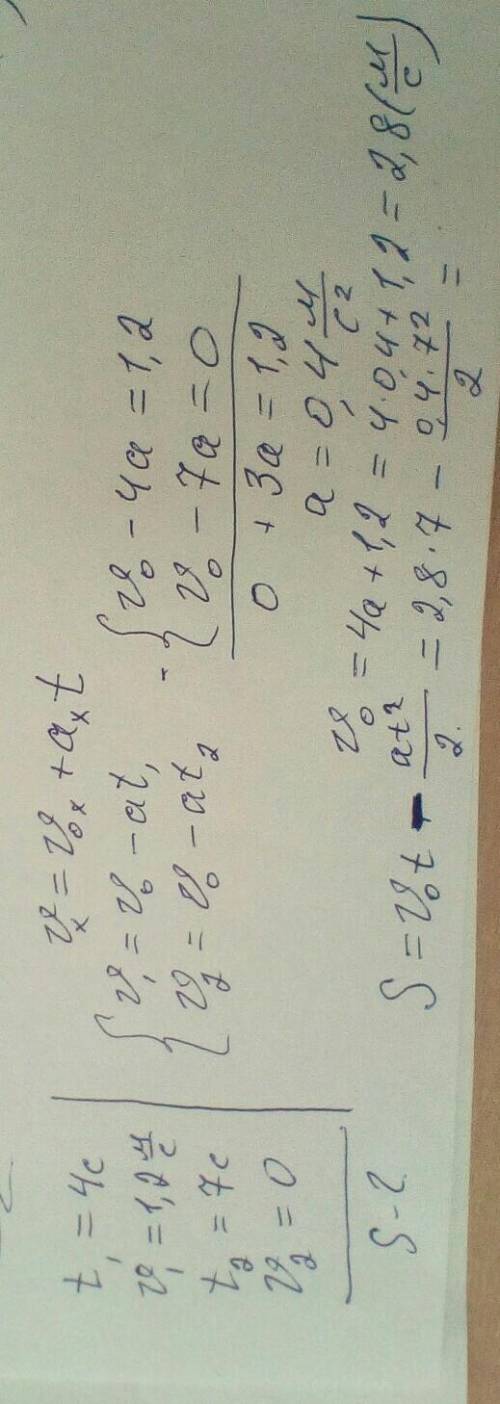 t₁ = 4c
v₁ = 1,2 м/с
t₂ = 7c
v₂ = 0
S - ?
vₓ = v₀ₓ + aₓt
{ v₁ = v₀ - at₁
{ v₂ = v₀ - at₂
- { v₀ - 4a = 1,2
{ v₀ - 7a = 0
0 + 3a = 1,2
a = 0,4 м/с²
v₀ = 4a + 1,2 = 4·0,4 + 1,2 = 2,8 (м/с)
S = v₀t - at²/2 = 2,8·7 - 0,4·7²/2 =